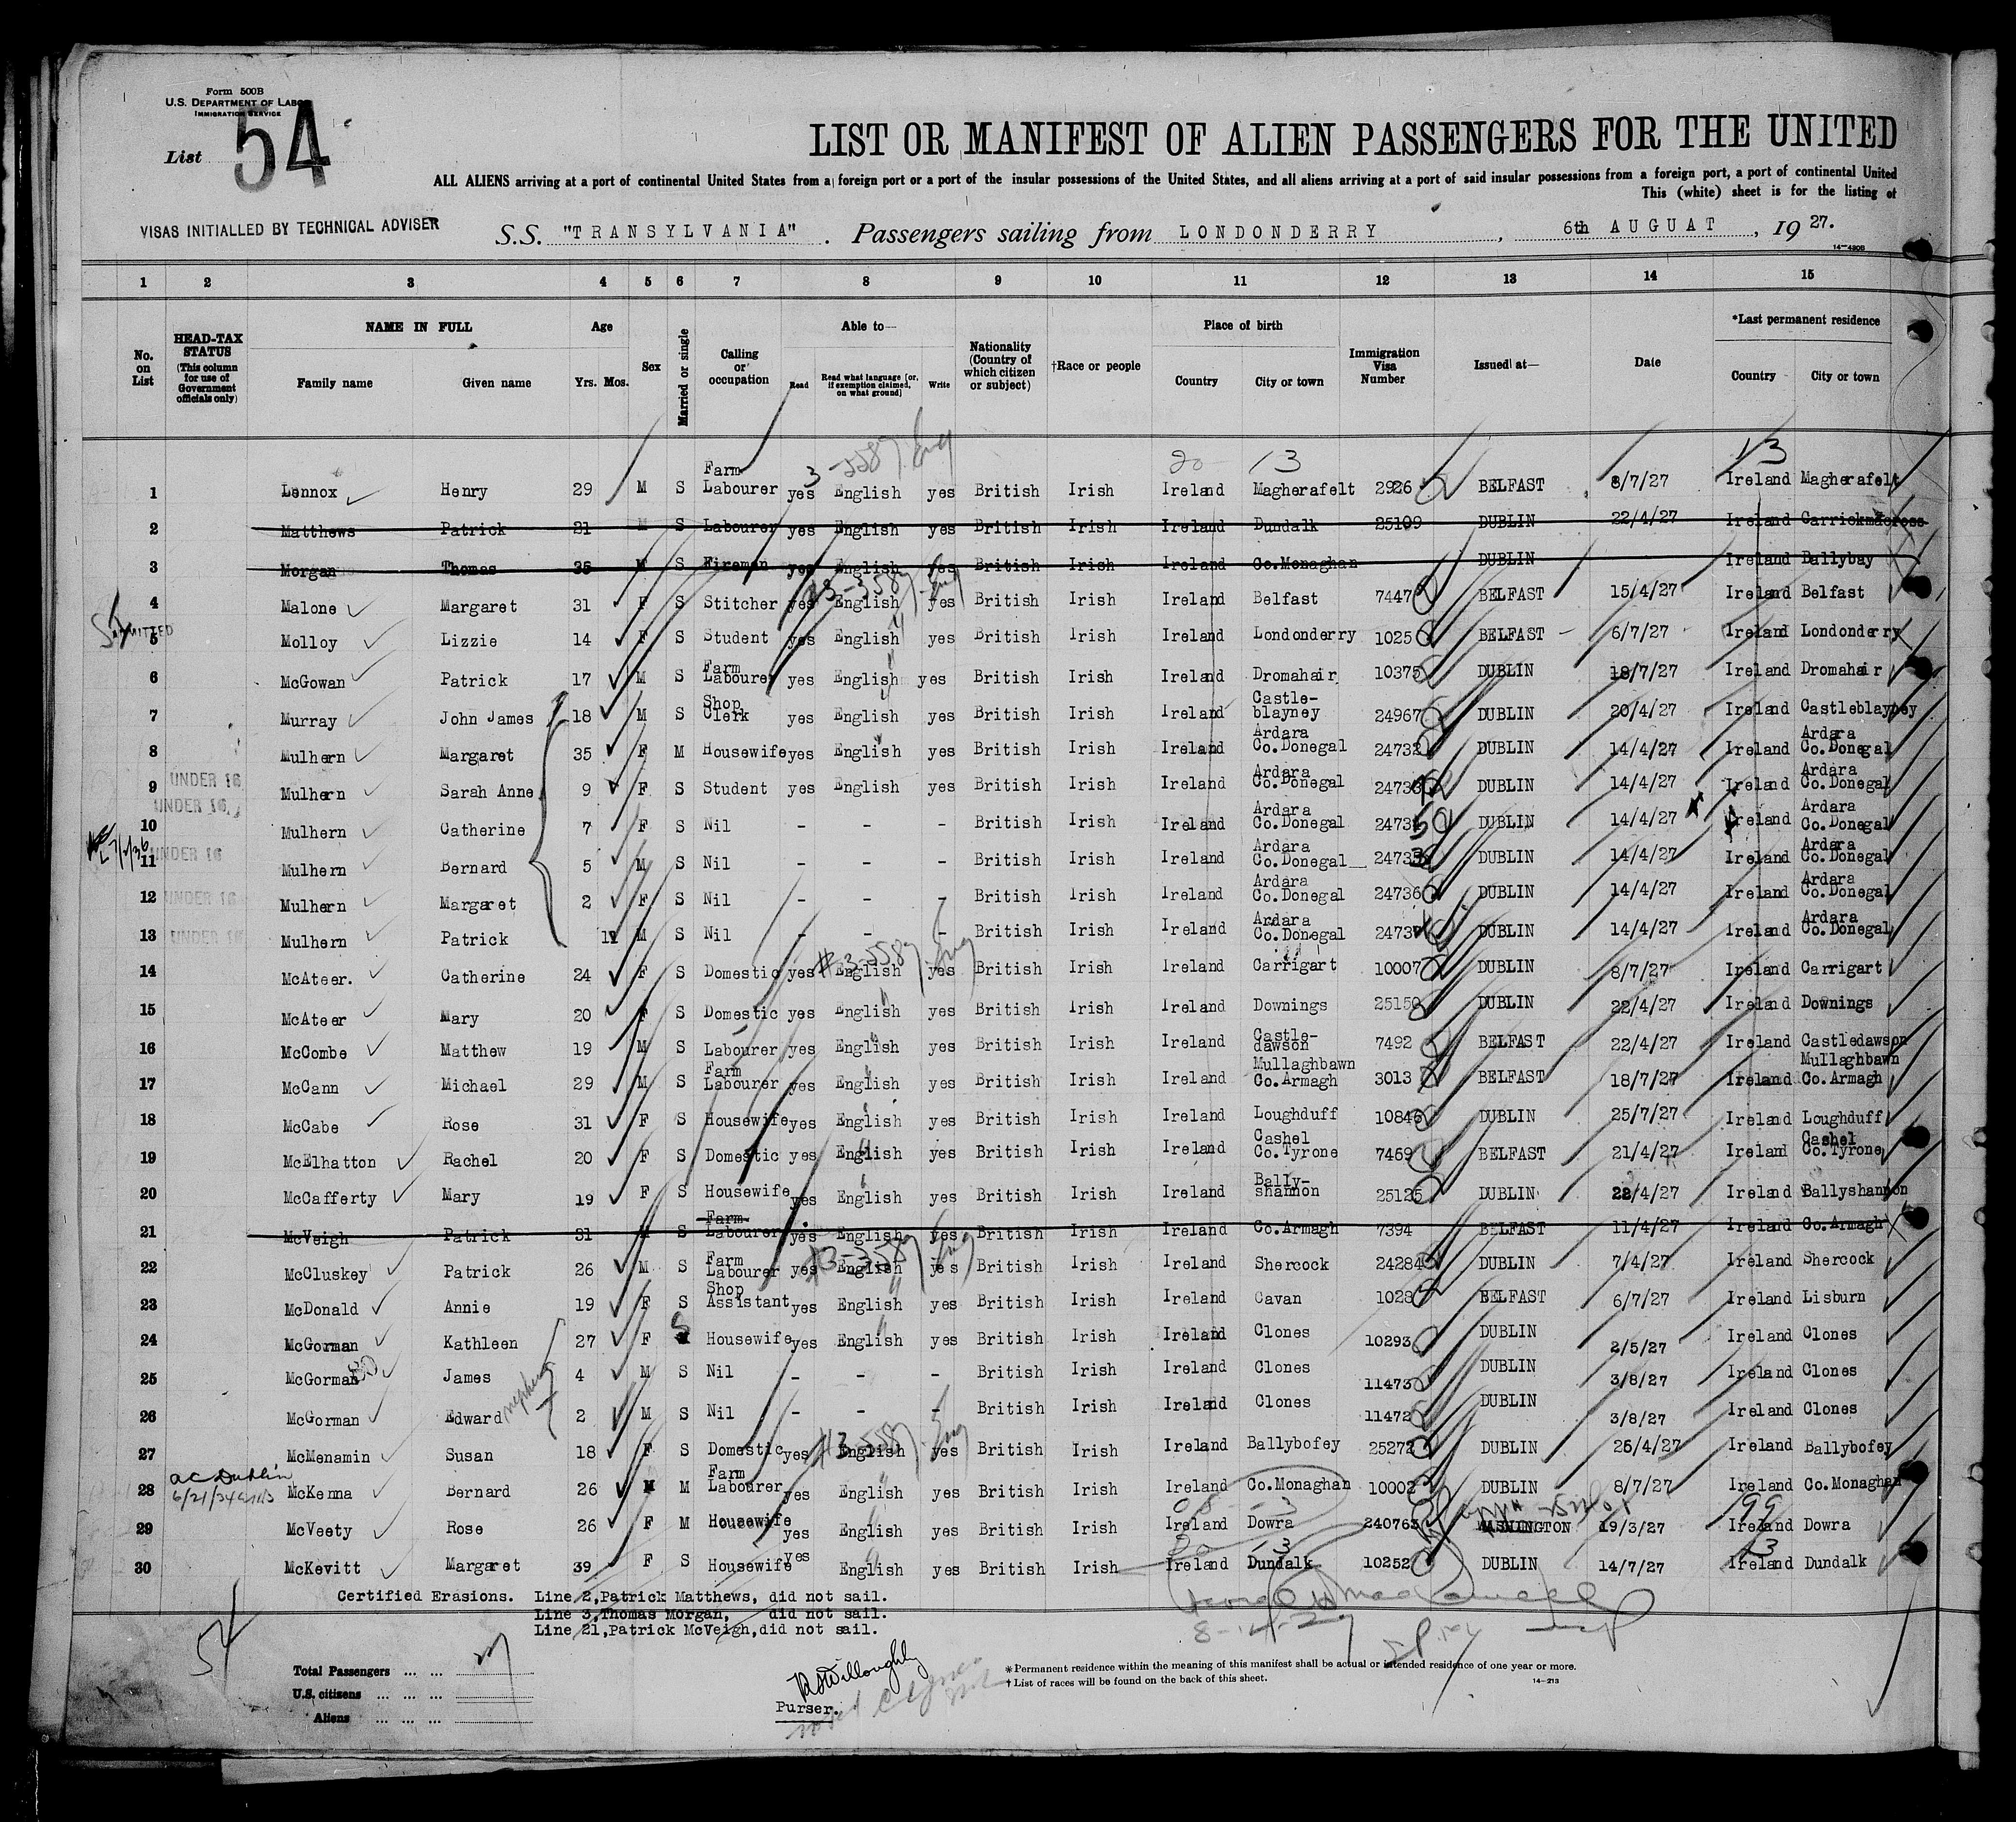 Form 500B
U.S. DEPARTMENT OF LABOR
IMMIGRATION SERVICE
List 54
LIST OR MANIFEST OF ALIEN PASSENGERS FOR THE UNITED
ALL ALIENS arriving at a port of continental United States from a foreign port or a port of the insular possessions of the United States, and all aliens arriving at a port of said insular possessions from a foreign port, a port of continental United
This (white) sheet is for the listing of
VISAS INITIALLED BY TECHNICAL ADVISER
S.S. "TRANSYLVANIA". Passengers sailing from LONDONDERRY, 6th AUGUAT, 1927.
14-420B
1 2 3 4 5 6 7 8 9 10 11 12 13 14 15
No. on List
HEAD-TAX STATUS (This column for use of Government officials only)
NAME IN FULL
Family name Given name
Age
Yrs. Mos.
Sex
Married or single
Calling or occupation
Able to—
Read
Read what language [or, if exemption claimed, on what ground]
Write
Nationality (Country of which citizen or subject)
†Race or people
Place of birth
Country City or town
Immigration Visa Number
Issued at—
Date
*Last permanent residence
Country City or town
20 13 13
1 Lennox Henry 29 M S Farm Labourer yes English yes British Irish Ireland Magherafelt 2926 BELFAST 8/7/27 Ireland Magherafelt
2 Matthews Patrick 21 M S Labourer yes English yes British Irish Ireland Dundalk 25109 DUBLIN 22/4/27 Ireland Carrickmacross
3 Morgan Thomas 35 M S Fireman yes English yes British Irish Ireland Co.Monaghan DUBLIN Ireland Ballybay
4 Malone Margaret 31 F S Stitcher yes English yes British Irish Ireland Belfast 7447 BELFAST 15/4/27 Ireland Belfast
ADMITTED
5 Molloy Lizzie 14 F S Student yes English yes British Irish Ireland Londonderry 1025 BELFAST 6/7/27 Ireland Londonderry
6 McGowan Patrick 17 M S Farm Labourer yes English yes British Irish Ireland Dromahair 10375 DUBLIN 18/7/27 Ireland Dromahair
7 Murray John James 18 M S Shop Clerk yes English yes British Irish Ireland Castle-blayney 24967 DUBLIN 20/4/27 Ireland Castleblayney
8 Mulhern Margaret 35 F M Housewife yes English yes British Irish Ireland Ardara Co.Donegal 24732 DUBLIN 14/4/27 Ireland Ardara Co.Donegal
9 UNDER 16 Mulhern Sarah Anne 9 F S Student yes English yes British Irish Ireland Ardara Co.Donegal 24733 DUBLIN 14/4/27 Ireland Ardara Co.Donegal
10 UNDER 16 Mulhern Catherine 7 F S Nil - - - British Irish Ireland Ardara Co.Donegal 24734 DUBLIN 14/4/27 Ireland Ardara Co.Donegal
11 UNDER 16 Mulhern Bernard 5 M S Nil - - - British Irish Ireland Ardara Co.Donegal 24735 DUBLIN 14/4/27 Ireland Ardara Co.Donegal
12 UNDER 16 Mulhern Margaret 2 F S Nil - - - British Irish Ireland Ardara Co.Donegal 24736 DUBLIN 14/4/27 Ireland Ardara Co.Donegal
13 UNDER 16 Mulhern Patrick M S Nil - - - British Irish Ireland Ardara Co.Donegal 24737 DUBLIN 14/4/27 Ireland Ardara Co.Donegal
14 McAteer. Catherine 24 F S Domestic yes English yes British Irish Ireland Carrigart 10007 DUBLIN 8/7/27 Ireland Carrigart
15 McAteer Mary 20 F S Domestic yes English yes British Irish Ireland Downings 25150 DUBLIN 22/4/27 Ireland Downings
16 McCombe Matthew 19 M S Labourer yes English yes British Irish Ireland Castle-dawson 7492 BELFAST 22/4/27 Ireland Castledawson
17 McCann Michael 29 M S Farm Labourer yes English yes British Irish Ireland Mullaghbawn Co.Armagh 3013 BELFAST 18/7/27 Ireland Mullaghbawn Co.Armagh
18 McCabe Rose 31 F S Housewife yes English yes British Irish Ireland Loughduff 10846 DUBLIN 25/7/27 Ireland Loughduff
19 McElhatton Rachel 20 F S Domestic yes English yes British Irish Ireland Cashel Co.Tyrone 7469 BELFAST 21/4/27 Ireland Cashel Co.Tyrone
20 McCafferty Mary 19 F S Housewife yes English yes British Irish Ireland Bally-shannon 25125 DUBLIN 22/4/27 Ireland Ballyshannon
21 McVeigh Patrick 31 M S Farm Labourer yes English yes British Irish Ireland Co.Armagh 7394 BELFAST 11/4/27 Ireland Co.Armagh
22 McCluskey Patrick 26 M S Farm Labourer yes English yes British Irish Ireland Shercock 24284 DUBLIN 7/4/27 Ireland Shercock
23 McDonald Annie 19 F S Shop Assistant yes English yes British Irish Ireland Cavan 1028 BELFAST 6/7/27 Ireland Lisburn
24 McGorman Kathleen 27 F S Housewife yes English yes British Irish Ireland Clones 10293 DUBLIN 2/5/27 Ireland Clones
25 McGorman James 4 M S Nil - - - British Irish Ireland Clones 11473 DUBLIN 3/8/27 Ireland Clones
nephews
26 McGorman Edward 2 M S Nil - - - British Irish Ireland Clones 11472 DUBLIN 3/8/27 Ireland Clones
27 McMenamin Susan 18 F S Domestic yes English yes British Irish Ireland Ballybofey 25272 DUBLIN 25/4/27 Ireland Ballybofey
ac Dublin
28 McKenna Bernard 26 M M Farm Labourer yes English yes British Irish Ireland Co.Monaghan 10002 DUBLIN 8/7/27 Ireland Co.Monaghan
29 McVeety Rose 26 F M Housewife yes English yes British Irish Ireland Dowra 240763 WASHINGTON 19/3/27 Ireland Dowra
30 McKevitt Margaret 39 F S Housewife yes English yes British Irish Ireland Dundalk 10252 DUBLIN 14/7/27 Ireland Dundalk
Certified Erasions. Line 2,Patrick Matthews, did not sail.
Line 3,Thomas Morgan, did not sail.
Line 21,Patrick McVeigh,did not sail.
54
Total Passengers ... ...
U.S. citizens ... ... ...
Aliens ... ... ...
Willoughby
Purser.
*Permanent residence within the meaning of this manifest shall be actual or intended residence of one year or more.
† List of races will be found on the back of this sheet.
14-213